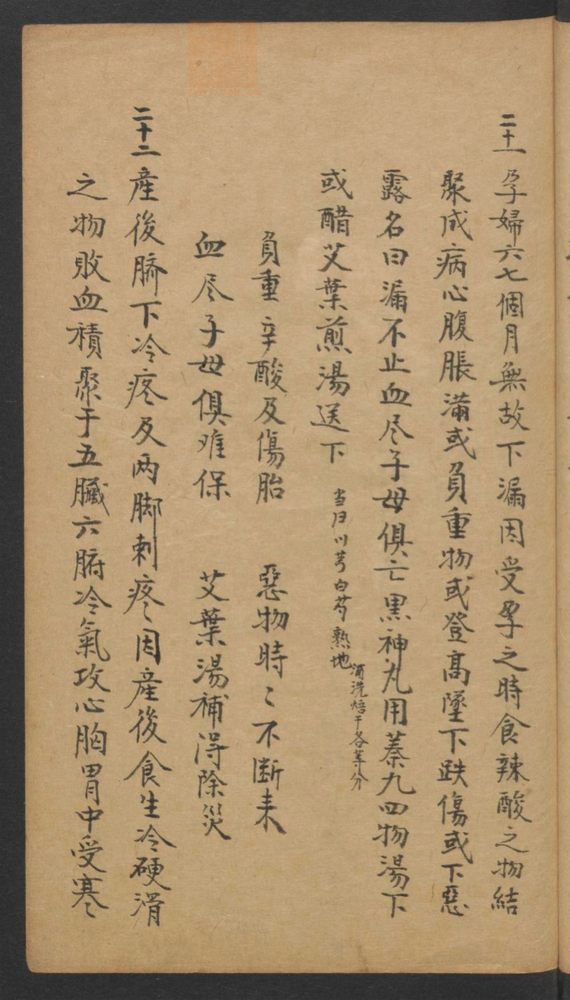 二十一 孕婦六七個月無故下漏因受孕之時食辣酸之物結
聚成病心腹脹滿或負重物或登高墜下跌傷或下惡
露名曰漏不止血尽子母俱亡黒神丸用蓁九四物湯下
或醋艾葉煎湯送下 当归川芎白芍熟地 酒洗焙干各等分
負重辛酸及傷胎 惡物時〻不断来
血尽子母俱难保 艾葉湯補淂除災
二十二 産後臍下冷疼及两脚刺疼因産後食生冷硬滑
之物敗血積聚于五臟六腑冷氣攻心胸胃中受寒